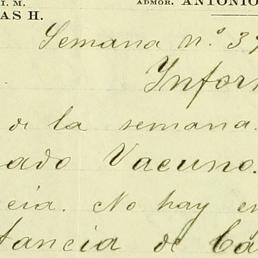 I. M.
ADMOR. ANTONIO
AS H.
Semana N.º 37
Infor
de la semana.
ado Vacuno.
cia. No hay en
tancia de Ca